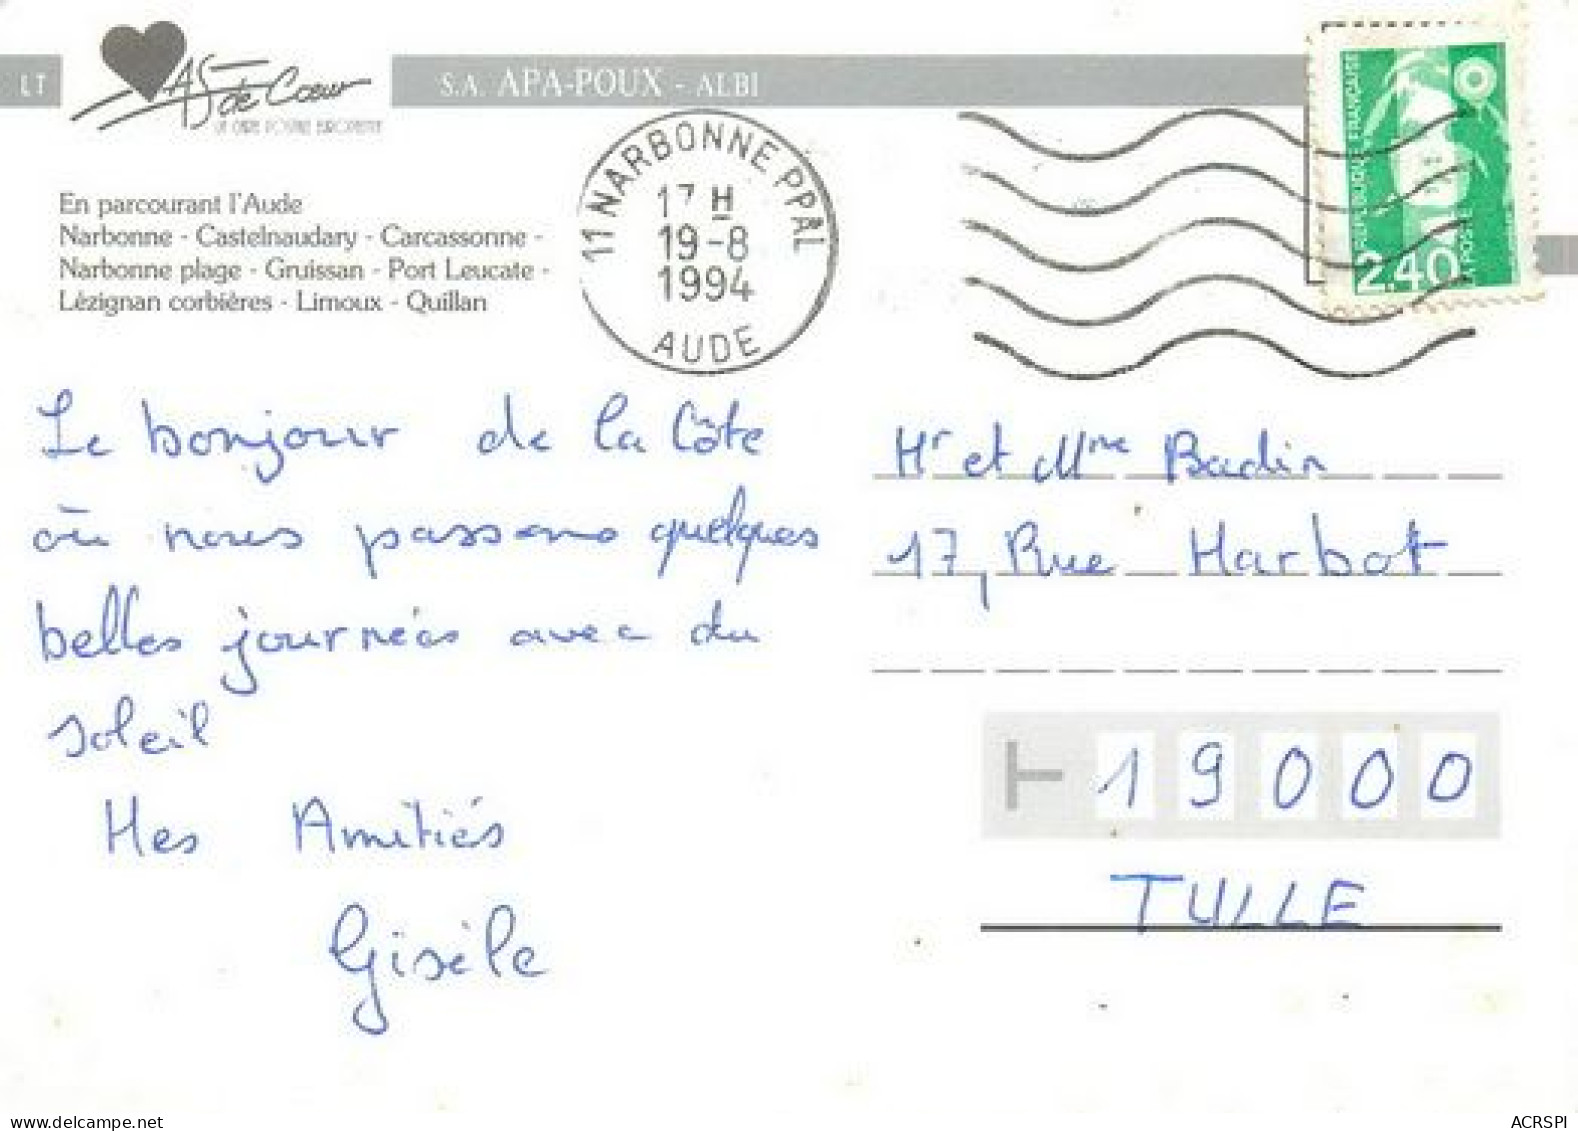 LT
AS de Cœur
LA CARTE POSTALE EUROPEENNE
S.A. APA-POUX - ALBI
En parcourant l'Aude
Narbonne - Castelnaudary - Carcassonne -
Narbonne plage - Gruissan - Port Leucate -
Lézignan corbières - Limoux - Quillan
11 NARBONNE PPAL
17 H
19-8
1994
AUDE
REPUBLIQUE FRANÇAISE
2.40
LA POSTE
Le bonjour de la Côte
où nous passons quelques
belles journées avec du
soleil
Mes Amitiés
Gisèle
Mr et Mme Badin
17, Rue Marbot
19000
TULLE
ACRSPI